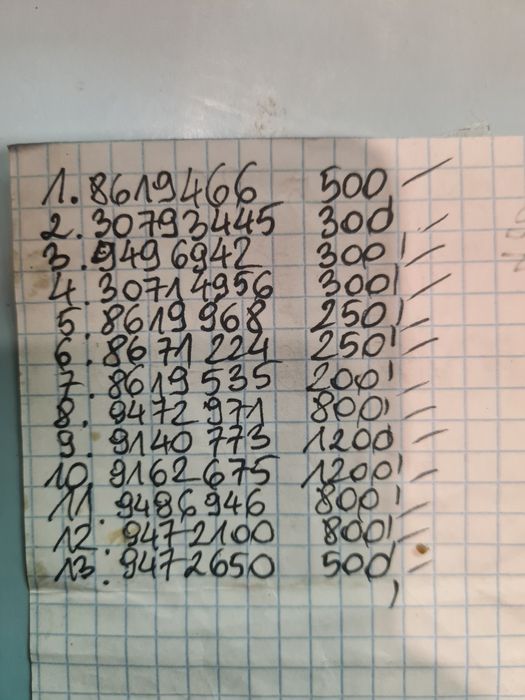 1. 8619466 500 —
2. 30793445 300 —
3. 9496942 300 —
4. 30714956 300 —
5. 8619968 250 —
6. 8671224 250 —
7. 8619535 200 —
8. 9472971 800 —
9. 9140773 1200 —
10. 9162675 1200 —
11. 9486946 800 —
12. 9472100 800 —
13. 9472650 500 —